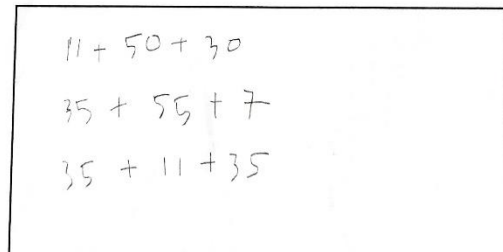 11 + 50 + 30
35 + 55 + 7
35 + 11 + 35